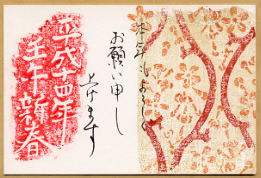 本年もよろしく
お願い申し
上げます
平成十四年
壬午新春